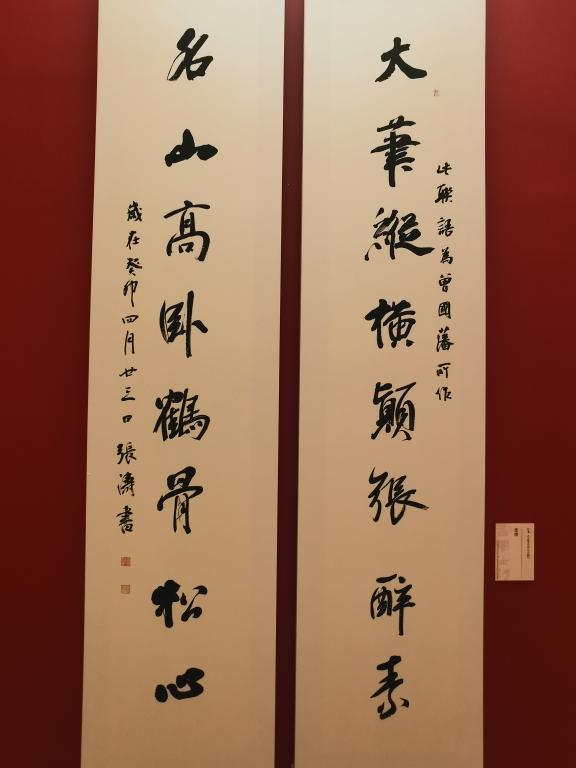 大筆縱橫顛張醉素
此聯語為曾國藩所作
名山高卧鶴骨松心
歲在癸卯四月廿三日張濤書